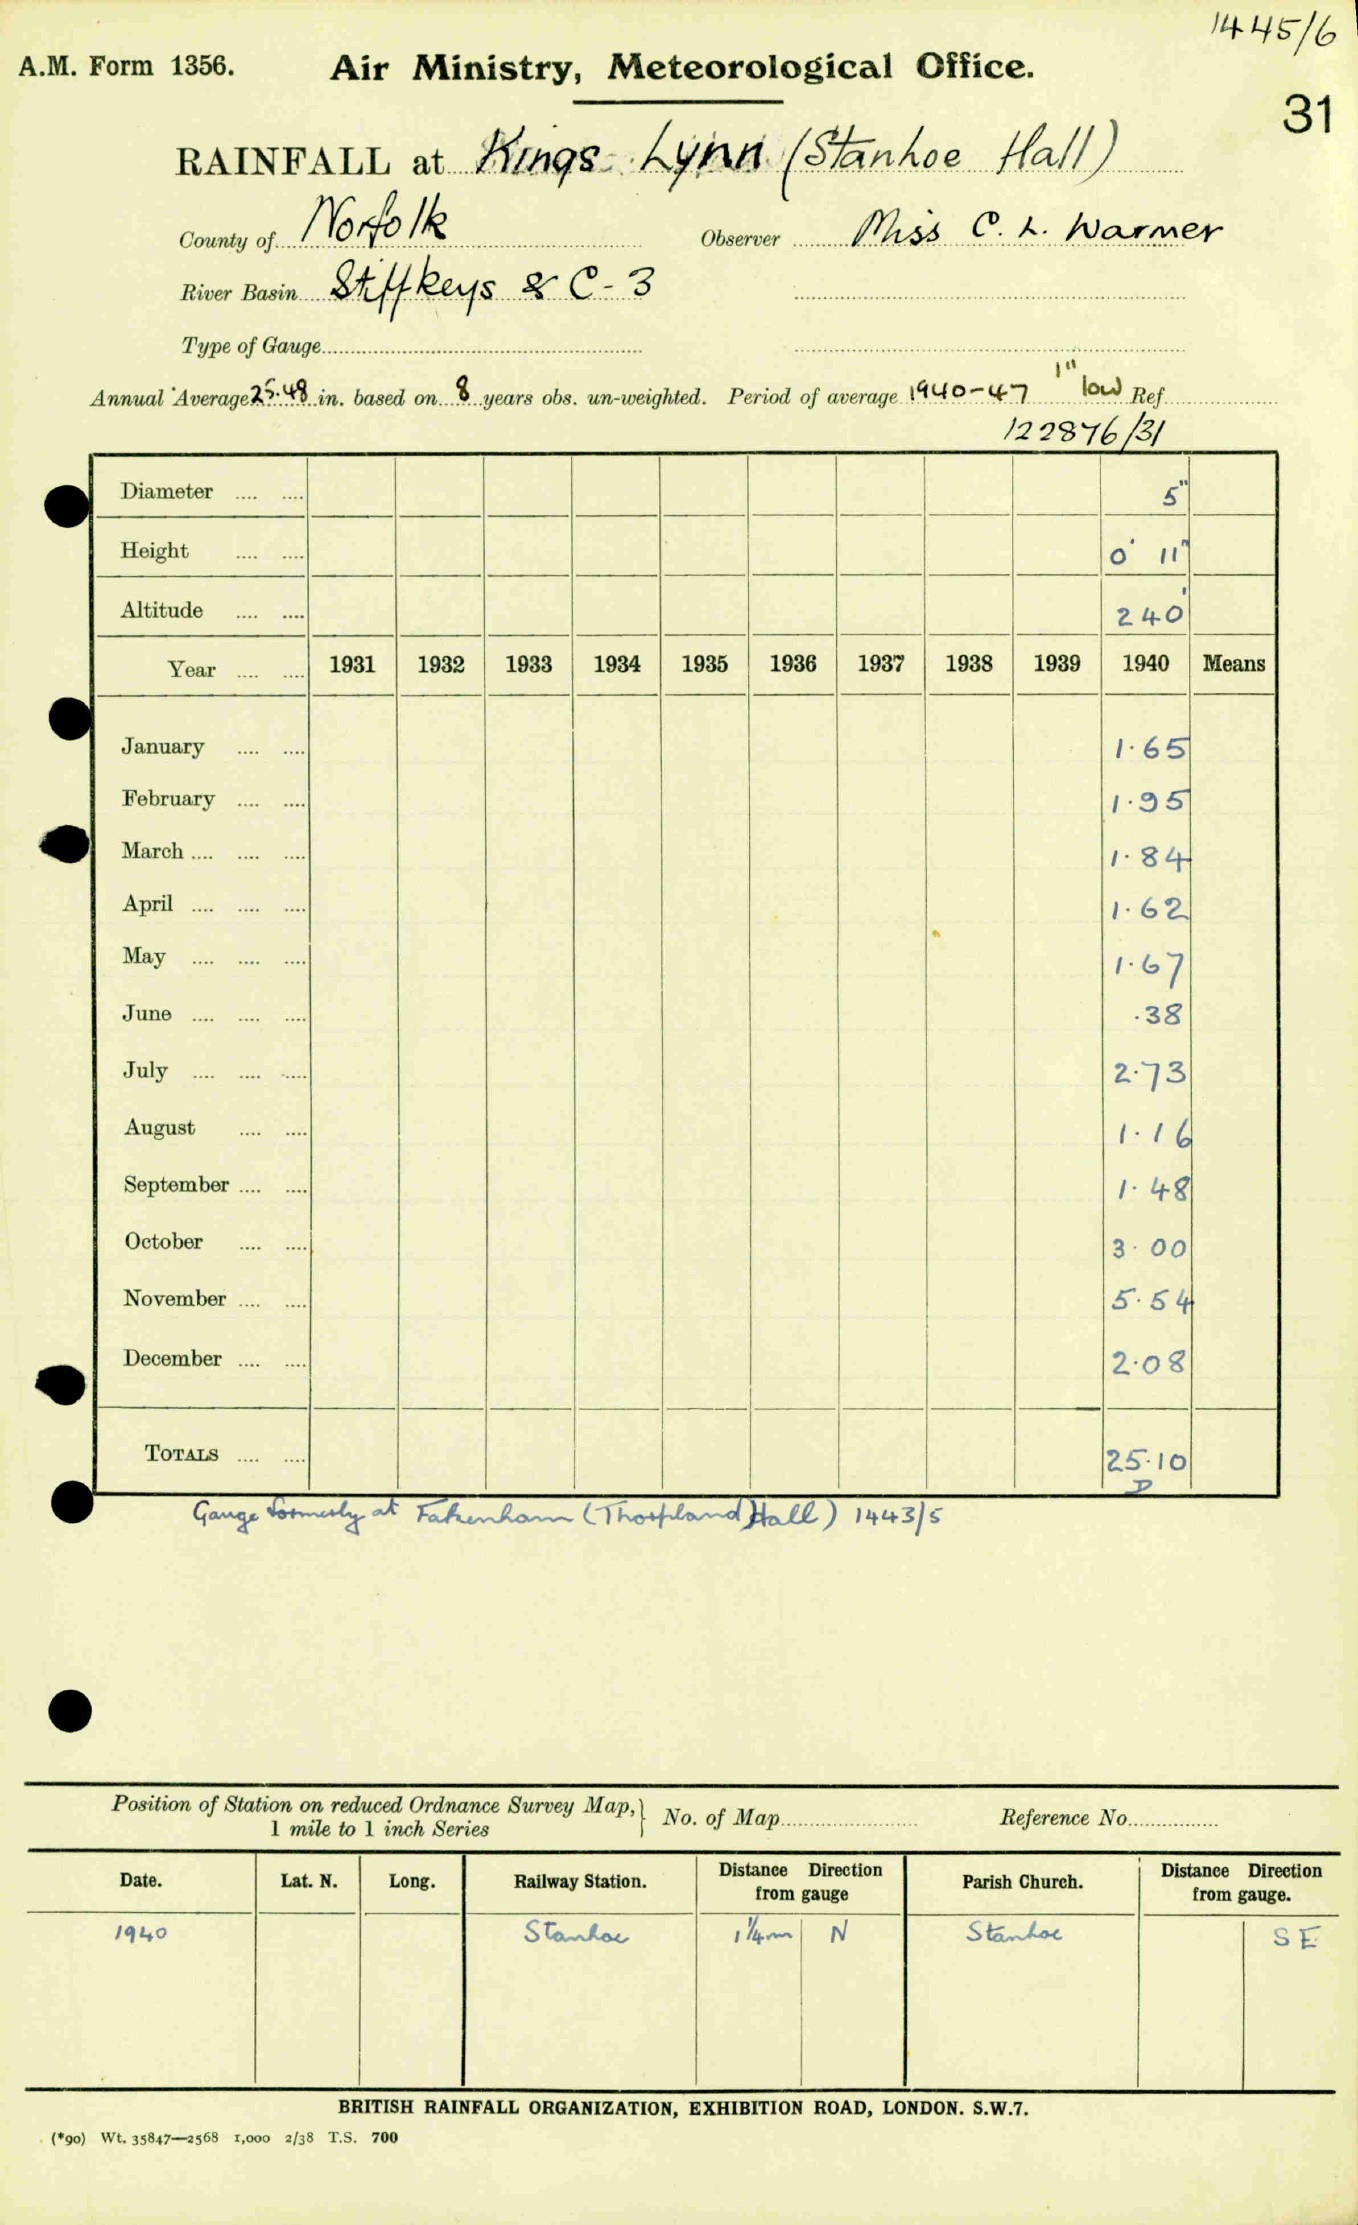 1445/6
A.M. Form 1356. Air Ministry, Meteorological Office.
31
RAINFALL at Kings Lynn (Stanhoe Hall)
County of Norfolk Observer Miss C. L. Warmer
River Basin Stiffkeys & C-3
Type of Gauge
Annual Average 25.48 in. based on 8 years obs. un-weighted. Period of average 1940-47 1" low Ref.
122876/31
Diameter .... .... 5"
Height .... .... 0' 11"
Altitude .... .... 240'
Year .... .... 1931 1932 1933 1934 1935 1936 1937 1938 1939 1940 Means
January .... .... 1.65
February .... .... 1.95
March .... .... .... 1.84
April .... .... .... 1.62
May .... .... .... 1.67
June .... .... .... .38
July .... .... .... 2.73
August .... .... 1.16
September .... .... 1.48
October .... .... 3.00
November .... .... 5.54
December .... .... 2.08
TOTALS .... .... 25.10
D
Gauge formerly at Fakenham (Thorpland Hall) 1443/5
Position of Station on reduced Ordnance Survey Map, } No. of Map Reference No.
1 mile to 1 inch Series
Date. Lat. N. Long. Railway Station. Distance Direction from gauge Parish Church. Distance Direction from gauge.
1940 Stanhoe 1¼m N Stanhoe SE
BRITISH RAINFALL ORGANIZATION, EXHIBITION ROAD, LONDON. S.W.7.
(*90) Wt. 35847—2568 1,000 2/38 T.S. 700